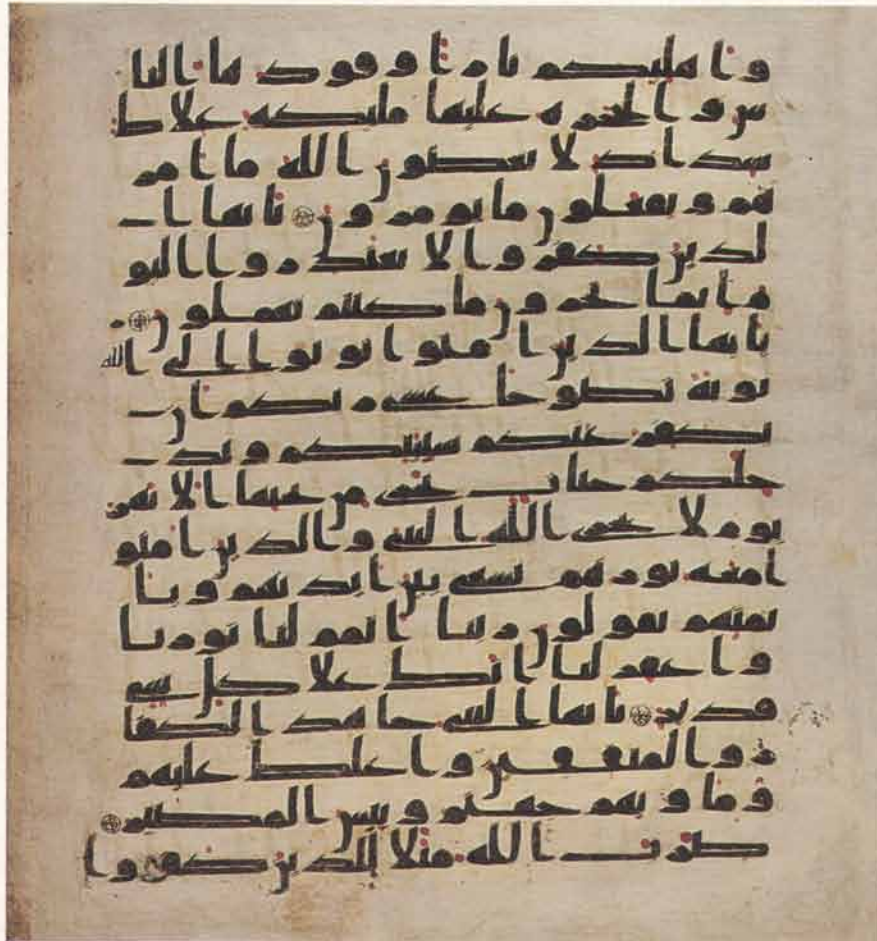 و اهليكم نارا و قودها النا
س و الحجرة عليها مليكة غلاظ
شداد لا يعصون الله ما امر
هم و يفعلون ما يومرون يايها ا
لذين كفروا لا تعتذروا اليو
م انما تجزون ما كنتم تعملون
يايها الذين امنوا توبوا الى الله
توبة نصوحا عسى ربكم ان
يكفر عنكم سياتكم و يد
خلكم جنات تجري من تحتها الانهر
يوم لا يخزي الله النبي و الذين امنو
ا معه نورهم يسعى بين ايديهم و با
يمنهم يقولون ربنا اتمم لنا نورنا
و اغفر لنا انك علا كل شي
قدير يايها النبي جاهد الكفا
ر و المنفقين و اغلظ عليهم
و ماويهم جهنم و بيس المصير
ضرب الله مثلا للذين كفروا